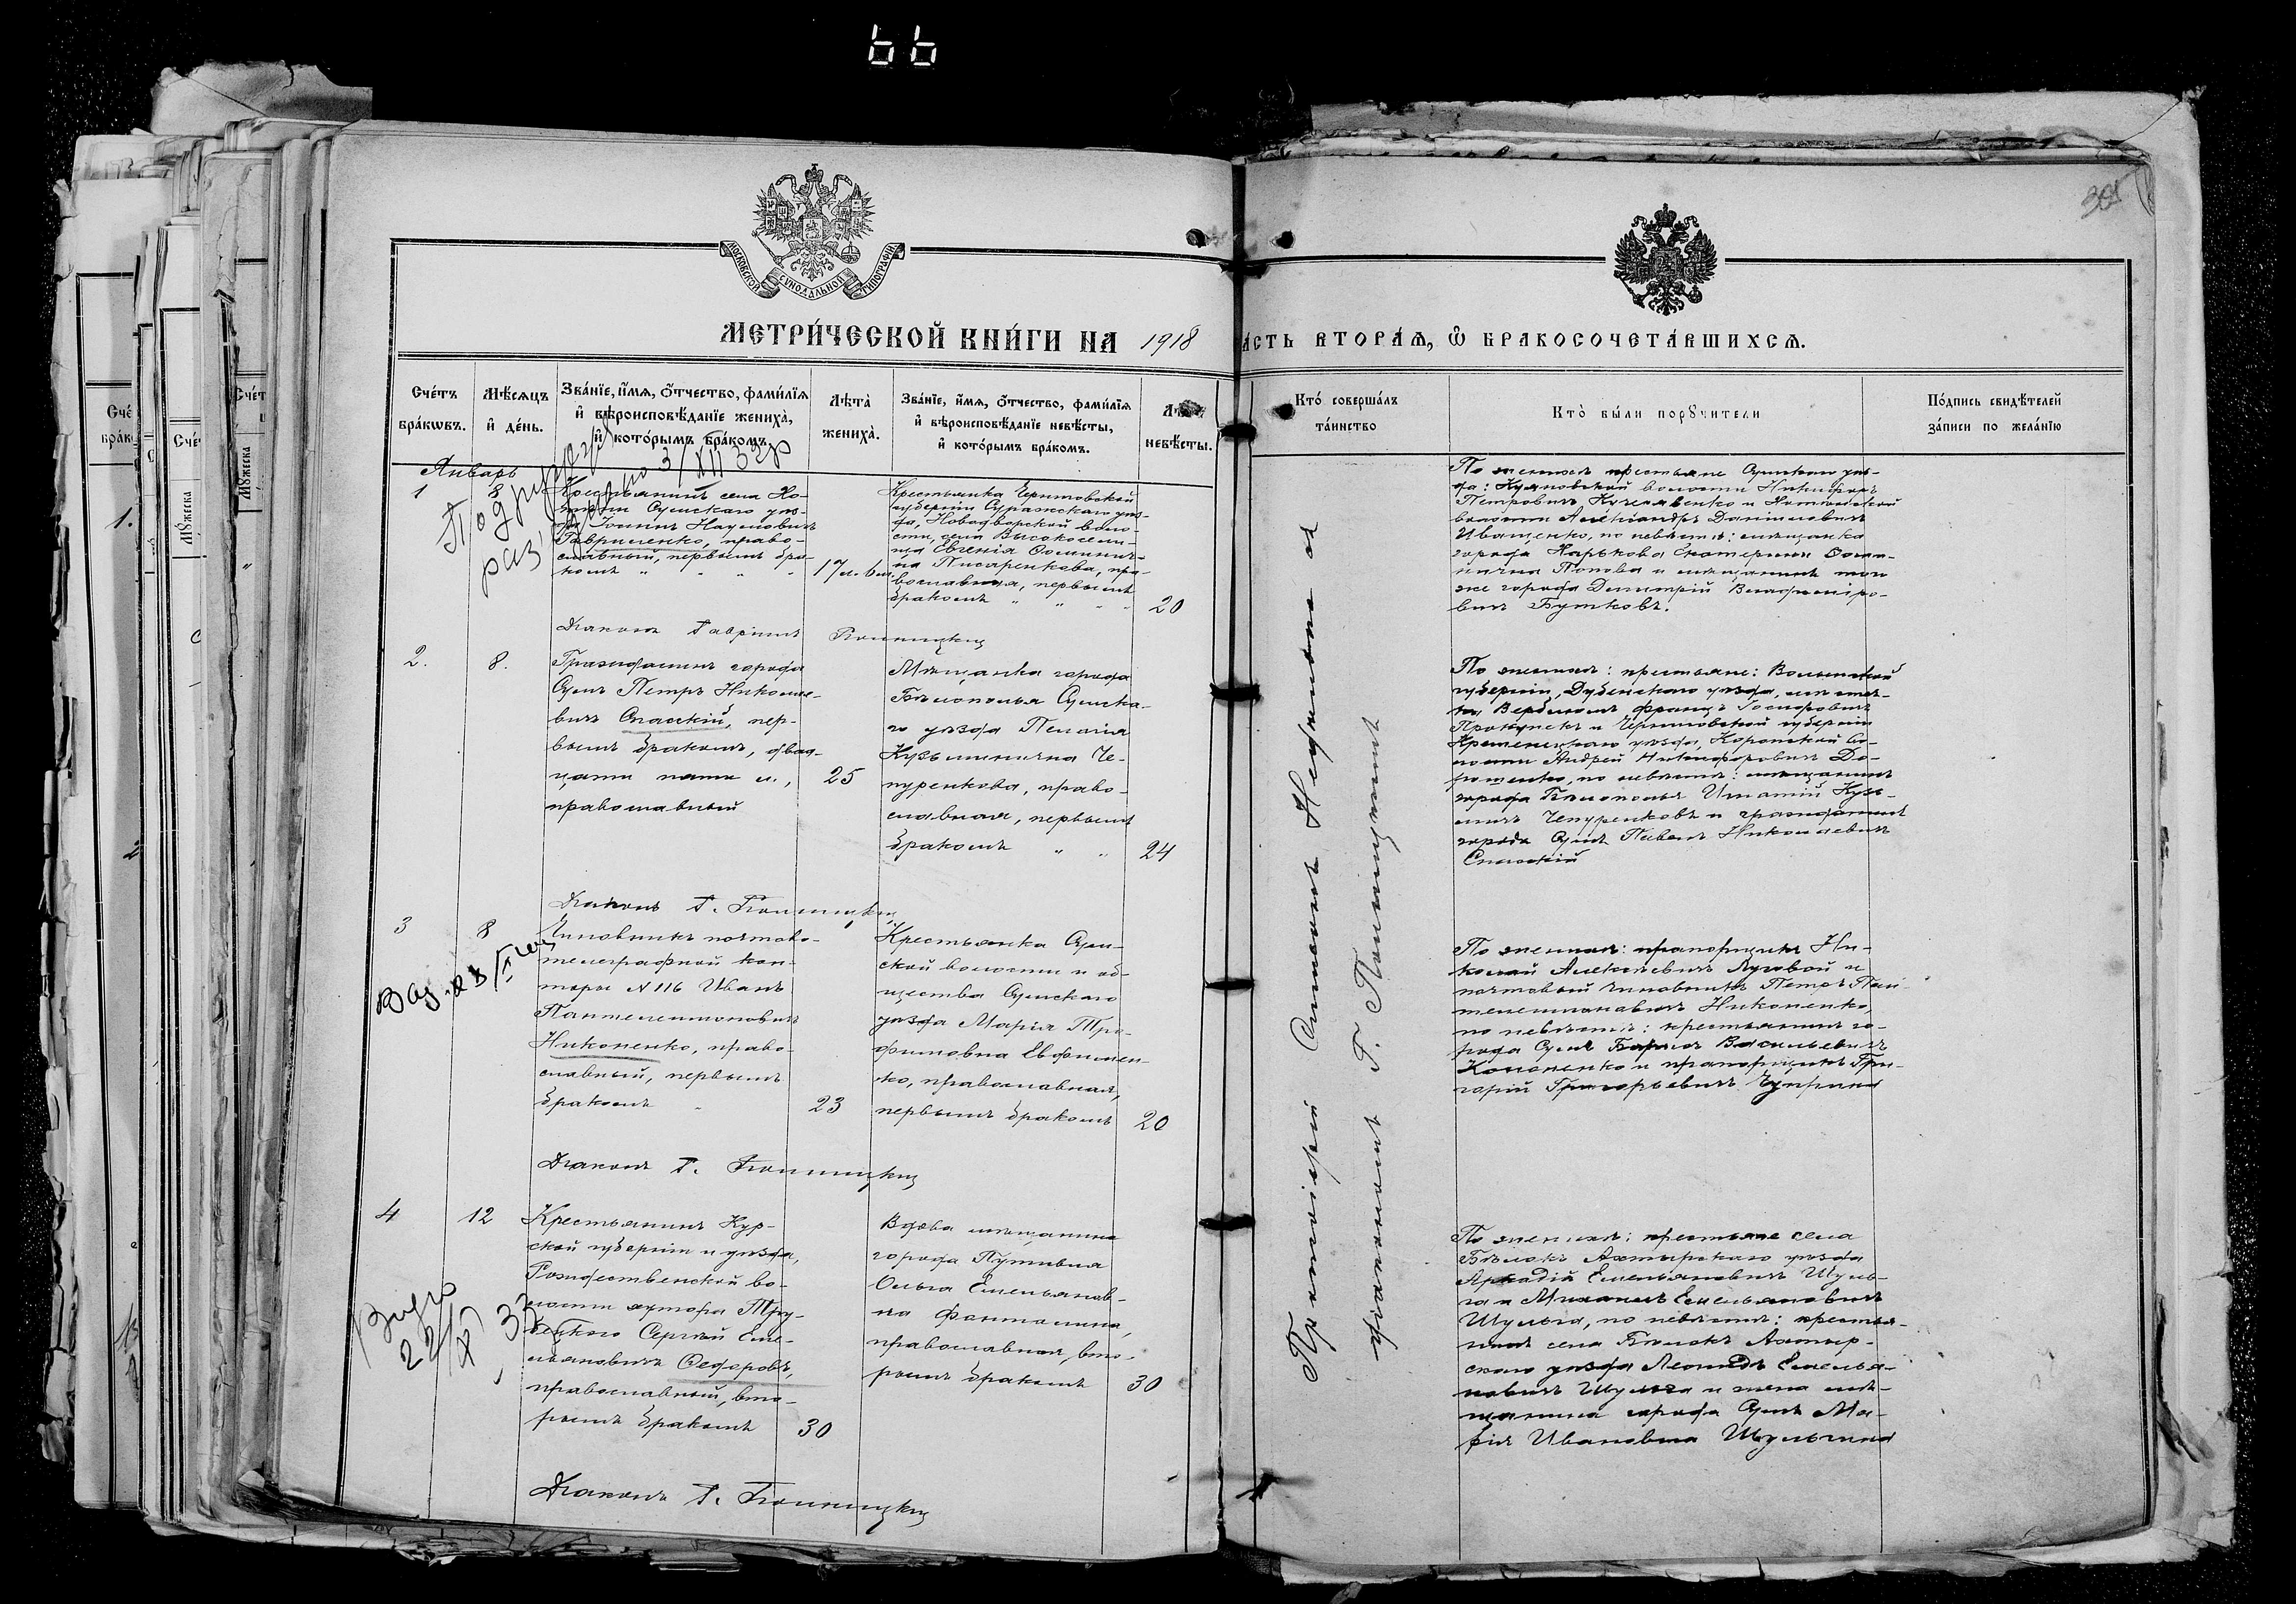 66
301
МОСКОВСКОЙ СѴНОДАЛЬНОЙ ТИПОГРАФІИ
МЕТРИ́ЧЕСКОЙ КНИ́ГИ НА 1918
АСТЬ ВТОРА́Ѧ, Ѽ БРАКОСОЧЕТА́ВШИХСѦ.
Сче́тъ бра́кѡвъ.
Мѣ́сѧцъ и҆ де́нь.
Зва́нїе, и҆́мѧ, ѻ҆́тчество, фами́лїѧ и҆ вѣроисповѣ́данїе жениха̀, и҆ кото́рымъ бра́комъ.
Лѣта̀ жениха̀.
Зва́нїе, и҆́мѧ, ѻ҆́тчество, фами́лїѧ и҆ вѣроисповѣ́данїе невѣ́сты, и҆ кото́рымъ бра́комъ.
невѣ́сты.
Кто̀ соверша́лъ та́инство
Кто̀ бы́ли порꙋчи́тели
По́дпись свидѣ́телей за́писи по жела́нїю
Январь
1
8
Крестьянинъ села Хо-
Сумскаго уѣз-
да Іоаннъ Наумовичъ
Гавриленко, право-
славный, первымъ бра-
комъ
17 л. 6 м.
Крестьянка Черниговской
губерніи Суражскаго уѣз-
да, Новодворской воло-
сти, села Высокосели-
ща Евгенія Ѳомини-
на Писаренкова, пра-
вославная, первымъ
бракомъ
20
Діаконъ Гавріилъ
По женихѣ крестьяне Сумскаго уѣз-
да: Куяновской волости Никифоръ
Петровичъ Кучеявенко и
волости Александръ Даніиловичъ
Иващенко, по невѣстѣ: мѣщанка
города Харькова Екатерина Ѳоми-
нична Попова и мѣщанинъ того
же города Димитрій
вичъ Бутковъ.
2.
8.
Гражданинъ города
Сумъ Петръ Николае-
вичъ Спасскій, пер-
вымъ бракомъ, двад-
цати пяти л.,
православный
25
Мѣщанка города
Бѣлополья Сумска-
го уѣзда Пелагія
Кузьминична Че-
пуренкова, право-
славная, первымъ
бракомъ
24
Діаконъ Г.
По женихѣ: крестьяне: Волынской
губерніи, Дубенскаго уѣзда, мѣстеч-
ка Вербы Францъ Іосифовичъ
и Черниговской губерніи
уѣзда, Коропской во-
лости Андрей Никифоровичъ До-
рошенко, по невѣстѣ: мѣщанинъ
города Бѣлополья Игнатій Кузь-
мичъ Чепуренковъ и гражданинъ
города Сумъ Павелъ Николаевичъ
Спасскій
3
8
Чиновникъ почтово-
телеграфной кон-
торы №116 Иванъ
Пантелеимоновичъ
Никоненко, право-
славный, первымъ
бракомъ
23
Крестьянка Сум-
ской волости и об-
щества Сумскаго
уѣзда Марія Тро-
фимовна Евфимен-
ко, православная,
первымъ бракомъ
20
Діаконъ Г.
По женихѣ: прапорщикъ Ни-
колай Алексѣевичъ Луговой и
почтовый чиновникъ Петръ Пан-
телеимоновичъ Никоненко,
по невѣстѣ: крестьянинъ го-
рода Сумъ Васильевичъ
Кононенко и прапорщикъ Гри-
горій Григорьевичъ Чуприна
4
12
Крестьянинъ Кур-
ской губерніи и уѣзда,
Рождественской во-
лости хутора Тру-
бецкого Сергѣй Еме-
льяновичъ Ѳедоровъ,
православный, вто-
рымъ бракомъ
30
Вдова мѣщанина
города Путивля
Ольга Емельянов-
на Фантолина,
православная, вто-
рымъ бракомъ
30
Діаконъ Г.
По женихѣ: крестьяне села
Бѣлокъ Ахтырскаго уѣзда
Аркадій Емельяновичъ Шуль-
га и Михаилъ Емельяновичъ
Шульга, по невѣстѣ: крестья-
нинъ села Бѣлокъ Ахтыр-
скаго уѣзда Леонидъ Емелья-
новичъ Шульга и жена мѣ-
щанина города Сумъ Ма-
рія Ивановна Шульгина
Протоіерей Симеонъ
діакономъ Г.